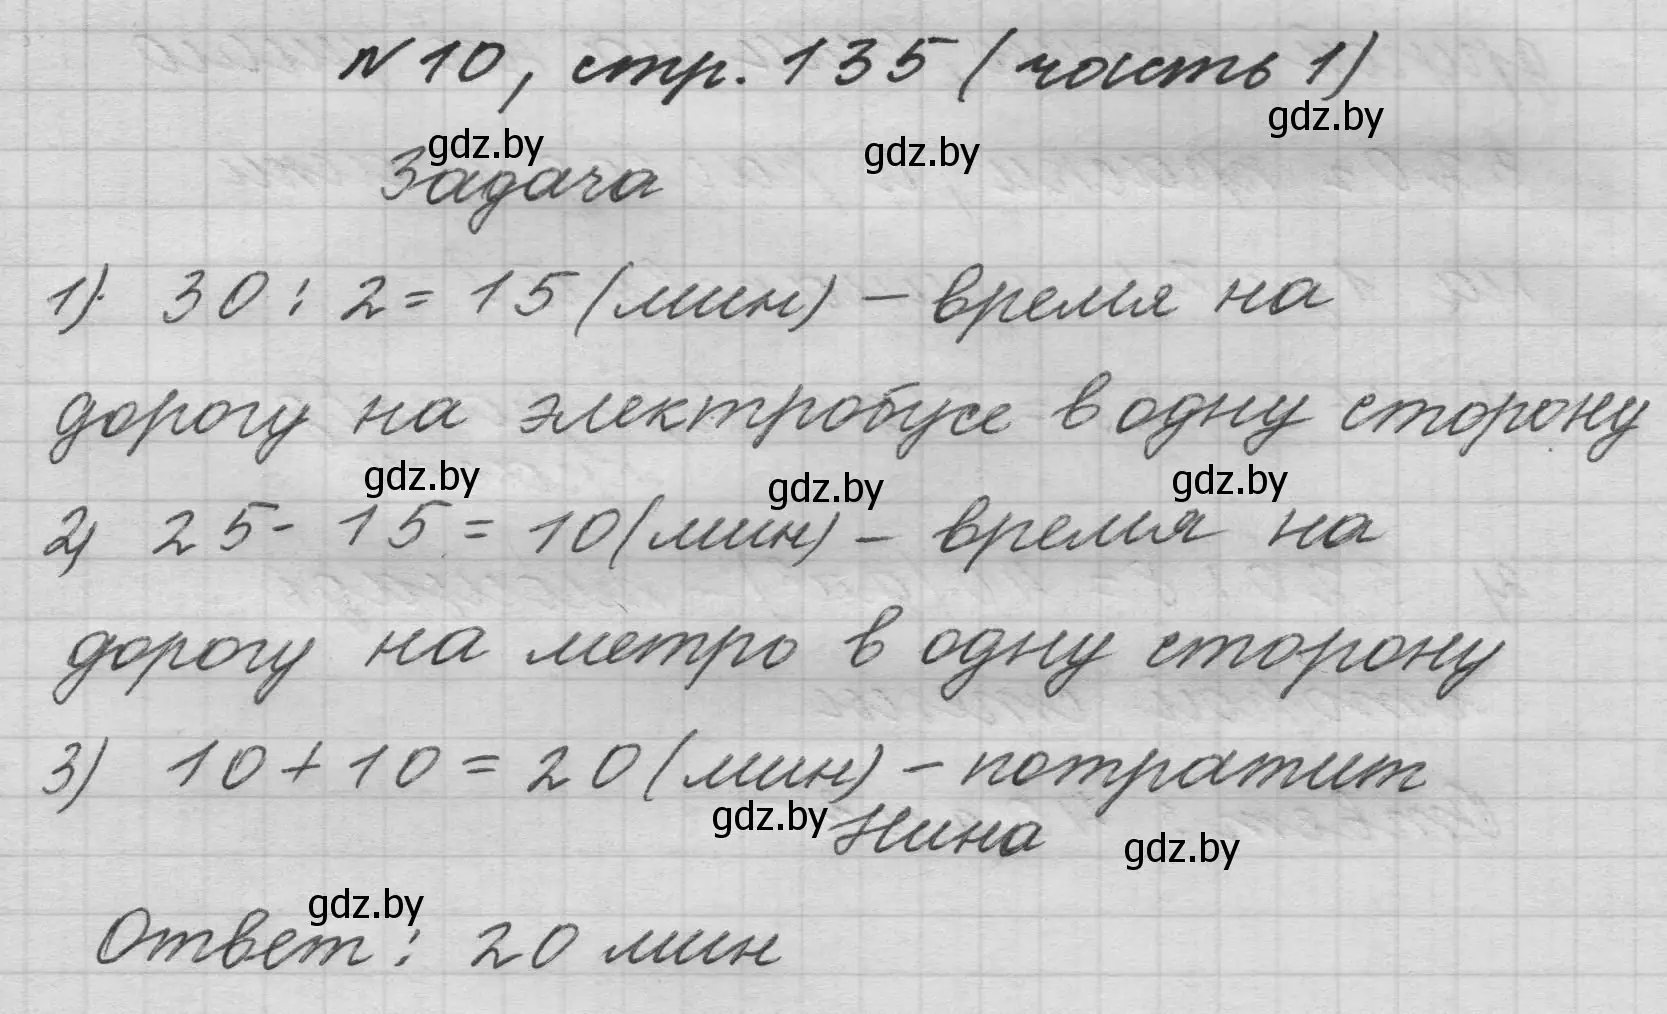 № 10, стр. 135 (часть 1)
gdz.by
gdz.by
gdz.by
Задача
1). 30 : 2 = 15 (мин) – время на
дорогу на электробусе в одну сторону
gdz.by
gdz.by
gdz.by
2) 25 - 15 = 10 (мин) – время на
дорогу на метро в одну сторону
3) 10 + 10 = 20 (мин) – потратит
gdz.by
Нина
gdz.by
gdz.by
Ответ: 20 мин